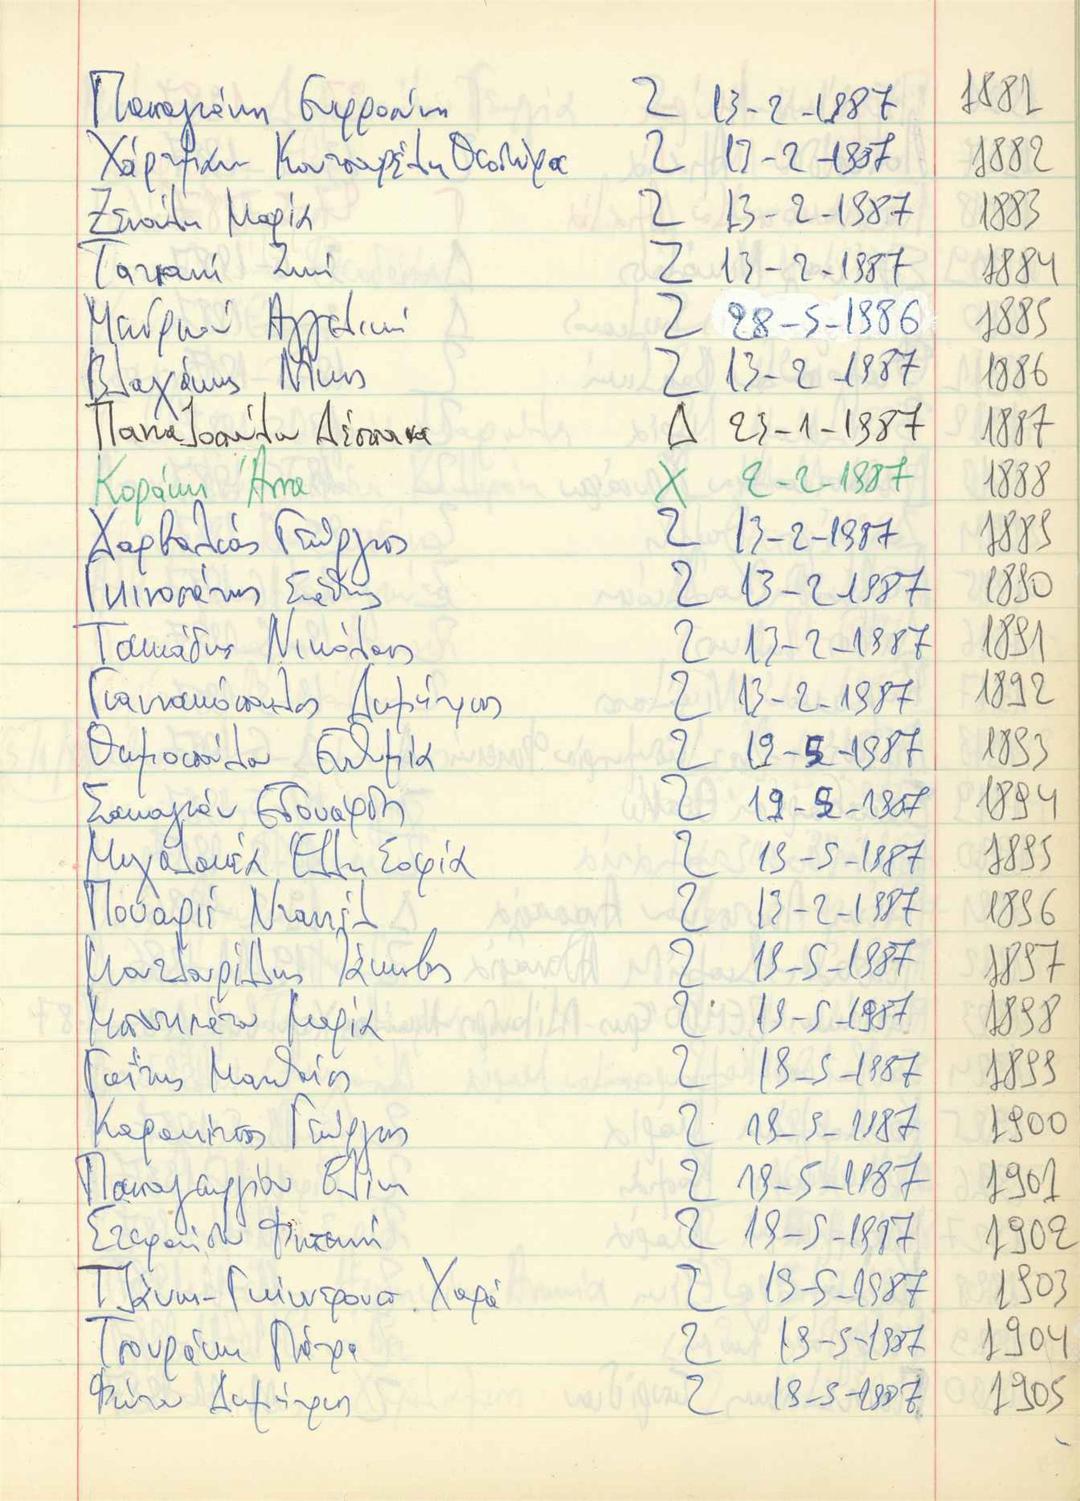 Παπαγιάννη Ευφροσύνη Ζ 13-2-1987 1881
Χάρτμαν Κουτσαρέλη Θεοδώρα Ζ 17-2-1987 1882
Ζενάλη Μαρία Ζ 13-2-1987 1883
Ζωή Ζ 13-2-1987 1884
Μαυρικού Αγγελική Ζ 28-5-1986 1885
Βλαχάκης Νίκος Ζ 13-2-1987 1886
Παπαϊωάννου Δέσποινα Δ 23-1-1987 1887
Κοράκη Άννα Χ 2-2-1987 1888
Χαρβαλιάς Γεώργιος Ζ 13-2-1987 1889
Γκινοσάτης Στάθης Ζ 13-2-1987 1890
Νικόλαος Ζ 13-2-1987 1891
Γιαννακόπουλος Δημήτριος Ζ 13-2-1987 1892
Θεμιοπούλου Ευθυμία Ζ 19-5-1987 1893
Σακαγιάν Εδουάρδη Ζ 19-5-1987 1894
Μιχαλακέα Έλλη Σοφία Ζ 19-5-1987 1895
Ντανιέλ Ζ 13-2-1987 1896
Μαυζαρίδης Ιάκωβος Ζ 19-5-1987 1897
Μαρία Ζ 19-5-1987 1898
Γαΐτης Ματθαίος Ζ 19-5-1987 1899
Καρακίτσος Γεώργιος Ζ 19-5-1987 1900
Παπαγεωργίου Ελένη Ζ 19-5-1987 1901
Στεφανίδου Φωτεινή Ζ 19-5-1987 1902
Τζάννη-Γκίννερουπ Χαρά Ζ 19-5-1987 1903
Τσουράκη Πέτρα Ζ 19-5-1987 1904
Φώτου Δημήτριος Ζ 19-5-1987 1905